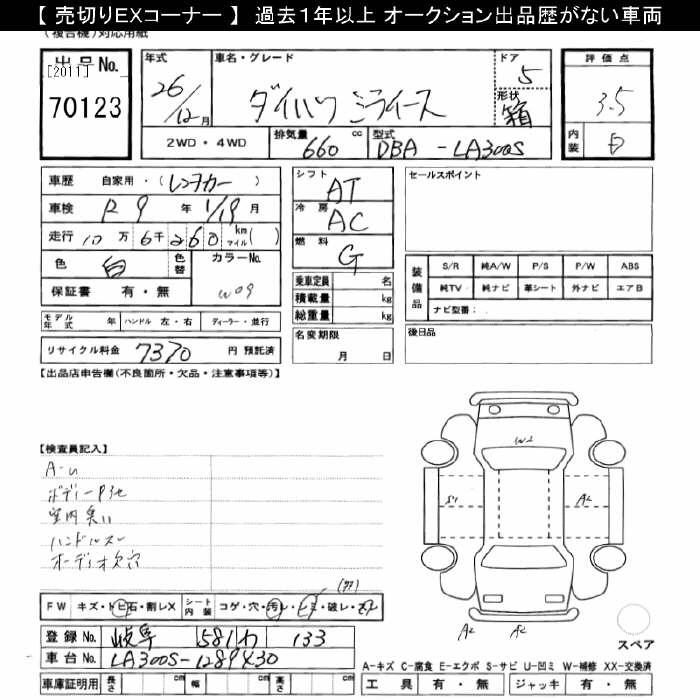 【 売切りEXコーナー 】 過去1年以上 オークション出品歴がない車両
(複合機)対応用紙
出品No.
[2011]
70123
年式
26/12月
車名・グレード
ダイハツ ミライース
ドア
5
形状
箱
評価点
3.5
内装
2WD・4WD
排気量
660 cc
型式
DBA - LA300S
車歴 自家用・(レンタカー)
車検 R9年 1/19月
走行 10万6千260 km マイル( )
色 白 色替
カラーNo.
W09
保証書 有・無
モデル年式 年 ハンドル 左・右 ディーラー・並行
リサイクル料金 7370 円 預託済
シフト
AT
冷房
AC
燃料
G
乗車定員 名
積載量 kg
総重量 kg
名変期限
月 日
セールスポイント
装備品
S/R 純A/W P/S P/W ABS
純TV 純ナビ 革シート 外ナビ エアB
ナビ型番:
後日品
【出品店申告欄(不良箇所・欠品・注意事項等)】
【検査員記入】
A-U
室内臭い
ハンドルスレ
オーディオ欠穴
W2
S1
A2
A2
FW キズ・トビ石・割レX
シート内装 コゲ・穴・汚レ・シミ・破レ・スレ
登録No. 岐阜 581 わ 133
車台No. LA300S-1289430
車庫証明用 長さ cm 幅 cm 高さ cm
スペア
A-キズ C-腐食 E-エクボ S-サビ U-凹ミ W-補修 XX-交換済
工具 有・無 ジャッキ 有・無